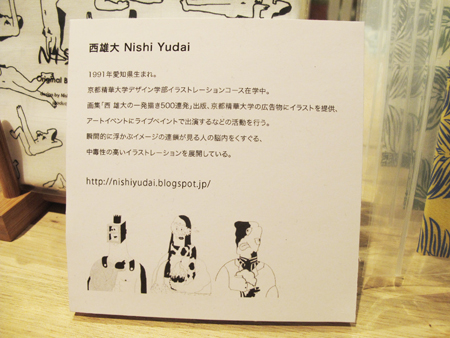 西雄大 Nishi Yudai
1991年愛知県生まれ。
京都精華大学デザイン学部イラストレーションコース在学中。
画集「西 雄大の一発描き500連発」出版、京都精華大学の広告物にイラストを提供、
アートイベントにライブペイントで出演するなどの活動を行う。
瞬間的に浮かぶイメージの連鎖が見る人の脳内をくすぐる、
中毒性の高いイラストレーションを展開している。
http://nishiyudai.blogspot.jp/
Original B